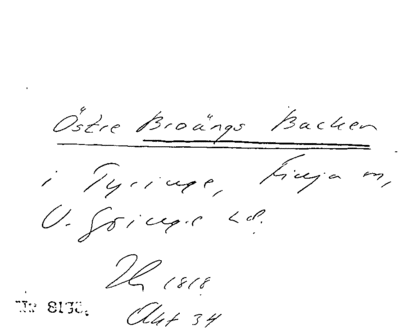 Östre Broängs Backen
i Tyringe, Finja sn,
V. Göinge hd.
1818
Akt 34
Nr 8138.